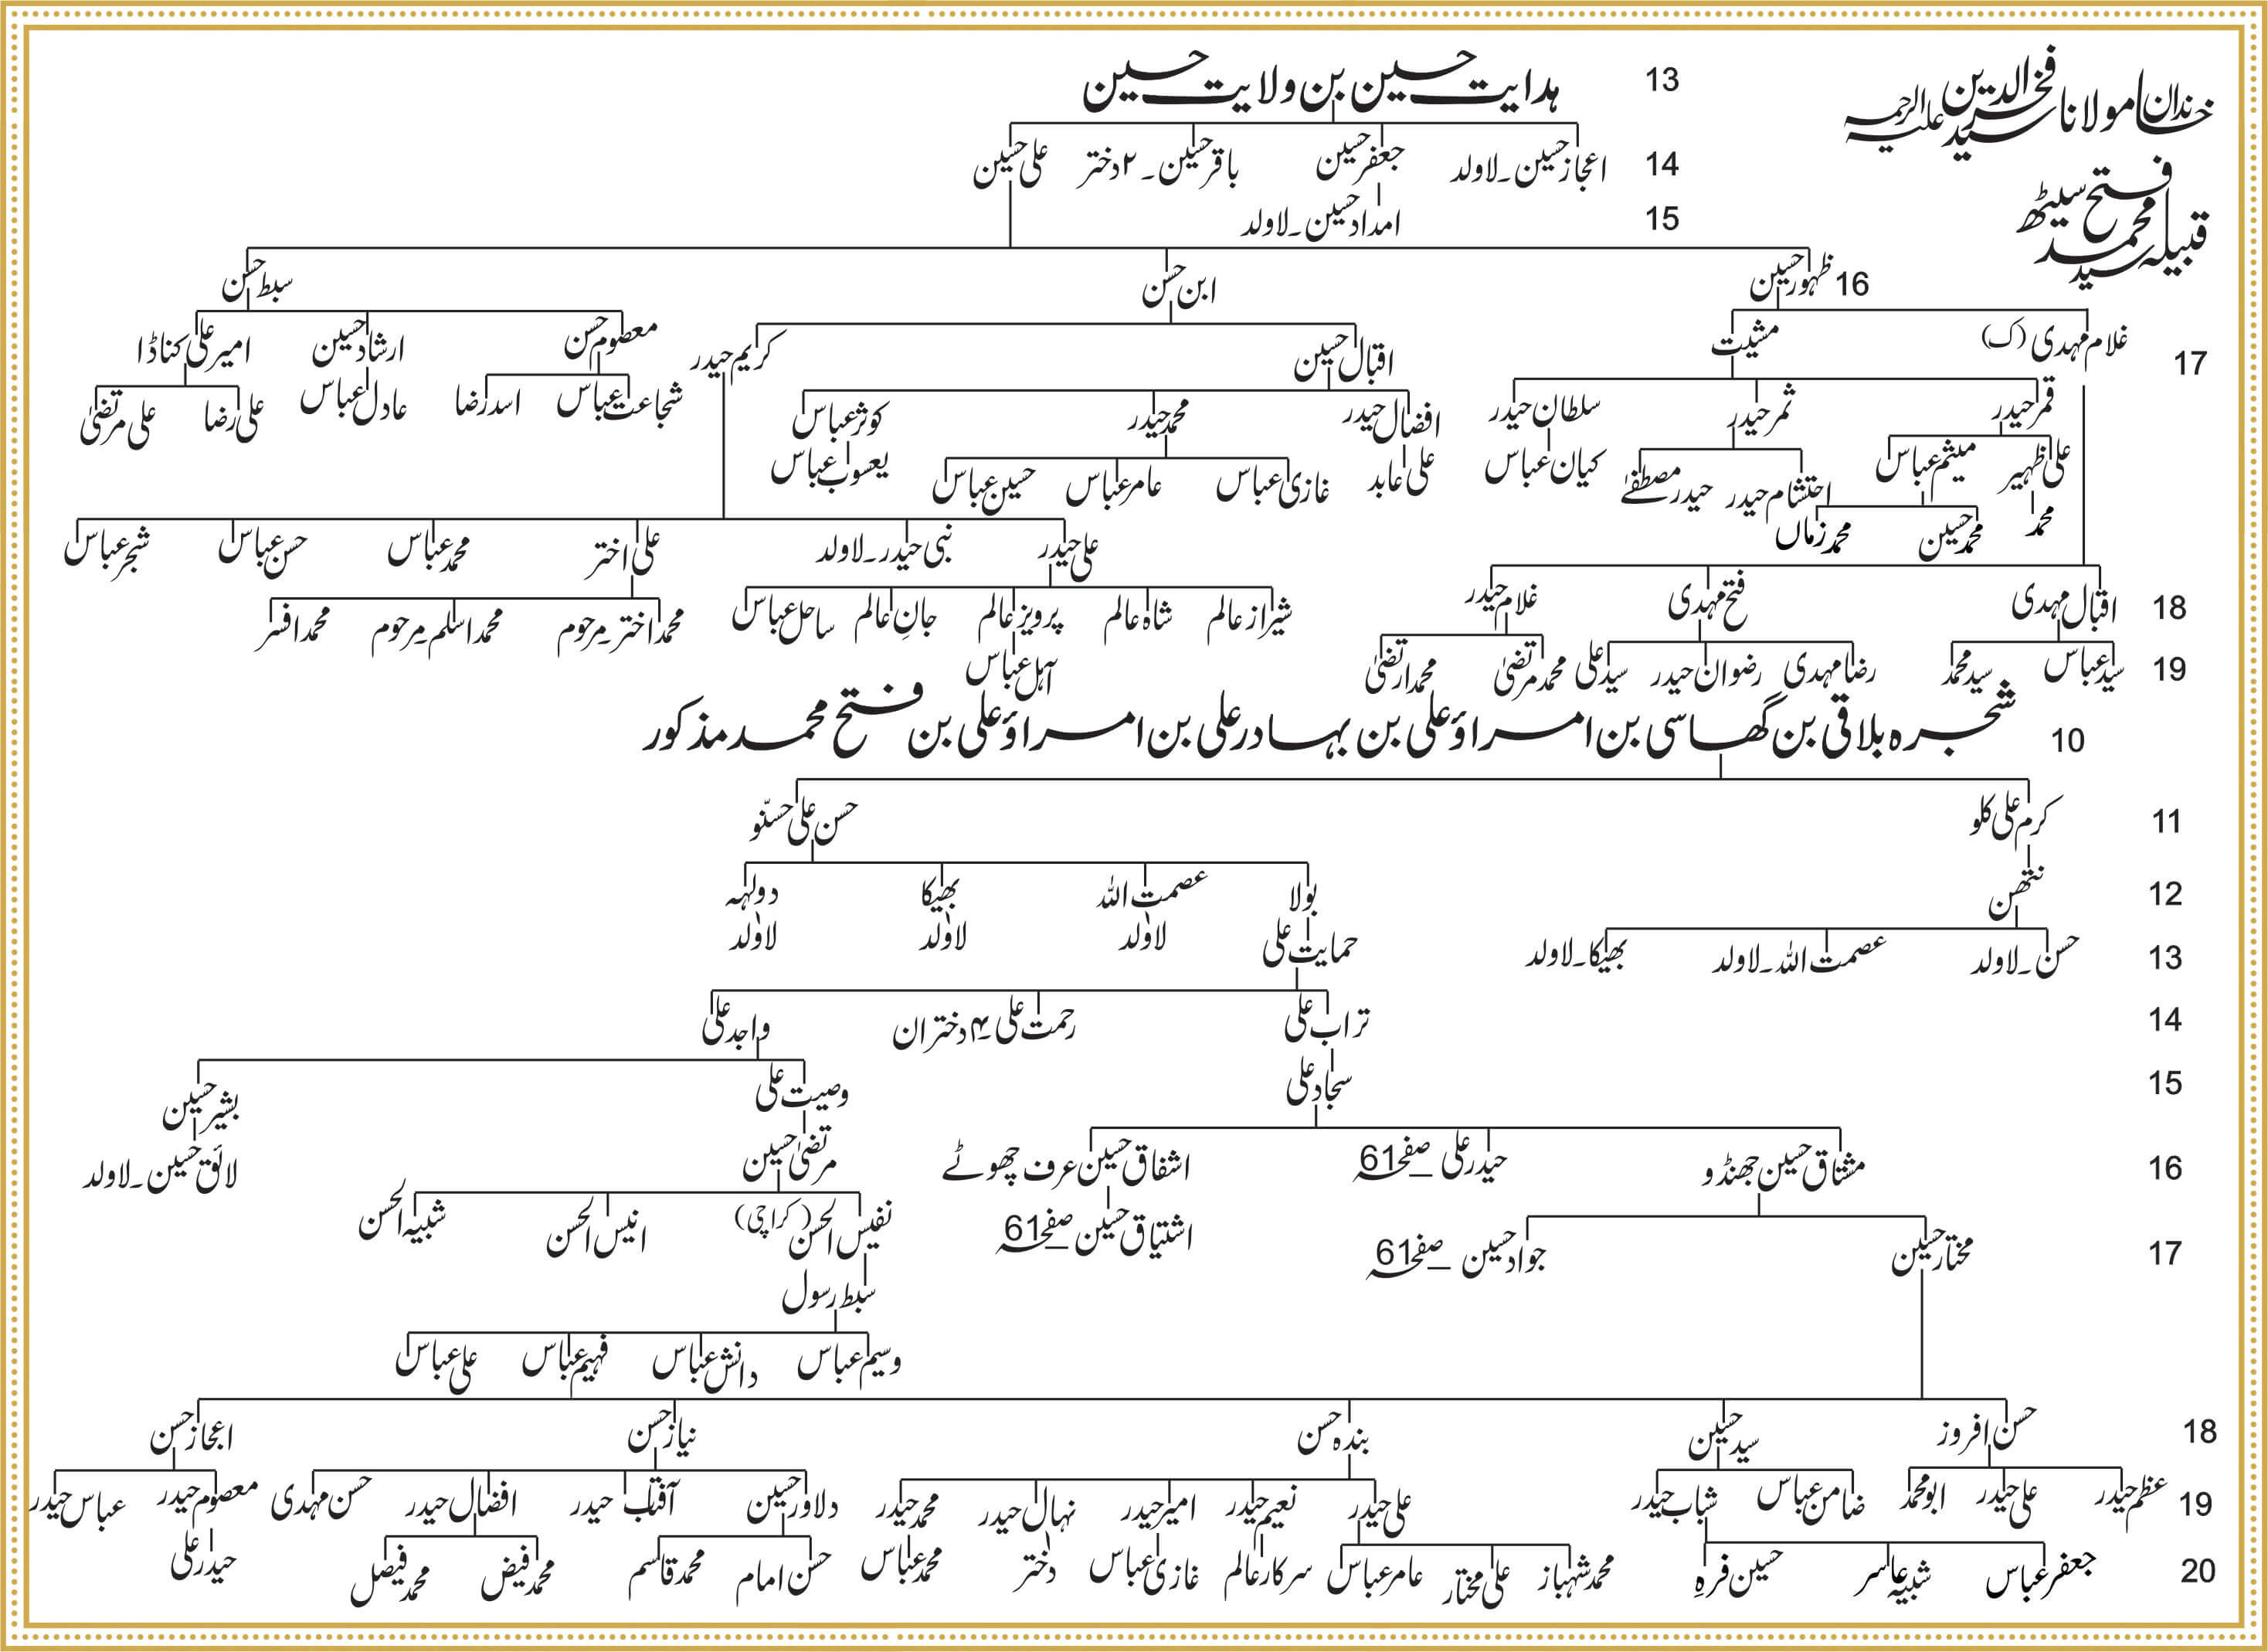 خاندان مولانا سید فخرالدین علیہ الرحمہ
قبیلہ سید محمد فتح سیٹھ
13 ہدایت حسین بن ولایت حسین
14 اعجاز حسین۔لاولد جعفر حسین باقر حسین۔۲دختر علی حسین
15 امداد حسین۔لاولد
16 ظہور حسین ابن حسن سبط حسن
17 غلام مہدی (ک) مشیت اقبال حسین کریم حیدر معصوم حسن ارشاد حسین امیر علی کناڈا
قمر حیدر ثمر حیدر سلطان حیدر افضال حیدر محمد حیدر کوثر عباس شجاعت عباس اسد رضا عادل عباس علی رضا علی مرتضیٰ
علی ظہیر میثم عباس احتشام حیدر حیدر مصطفےٰ کیان عباس علی عابد غازی عباس عامر عباس حسین عباس یعسوب عباس
محمد محمد حسین محمد زماں
علی حیدر نبی حیدر۔لاولد علی اختر محمد عباس حسن عباس شجر عباس
18 اقبال مہدی فتح مہدی غلام حیدر شیراز عالم شاہ عالم پرویز عالم جانِ عالم ساحل عباس محمد اختر۔مرحوم محمد اسلم۔مرحوم محمد افسر
19 سید عباس سید محمد رضا مہدی رضوان حیدر سید علی محمد مرتضیٰ محمد ارتضیٰ آہل عباس
10 شجرہ بلاقی بن گھاسی بن امراؤ علی بن بہادر علی بن امراؤ علی بن فتح محمد مذکور
11 کرم علی کلو حسن علی حسنّو
12 نتھن بولا عصمت اللہ بھیکا دولہہ
لاولد لاولد لاولد
13 حسن۔لاولد عصمت اللہ۔لاولد بھیکا۔لاولد حمایت علی
14 تراب علی رحمت علی۔۴دختران واجد علی
15 سجاد علی وصیت علی بشیر حسین
16 مشتاق حسین جھنڈو حیدر علی صفحہ 61 اشفاق حسین عرف چھوٹے مرتضیٰ حسین لائق حسین۔لاولد
17 مختار حسین جواد حسین صفحہ 61 اشتیاق حسین صفحہ 61 نفیس الحسن (کراچی) انیس الحسن شبیہ الحسن
سبط رسول
وسیم عباس دانش عباس فہیم عباس علی عباس
18 حسن افروز سید حسین بندہ حسن نیاز حسن اعجاز حسن
19 عظم حیدر علی حیدر ابو محمد ضامن عباس شاب حیدر علی حیدر نعیم حیدر امیر حیدر نہال حیدر محمد حیدر دلاور حسین آفتاب حیدر افضال حیدر حسن مہدی معصوم حیدر عباس حیدر
20 جعفر عباس شبیہ عاسر حسین فرہ محمد شہباز علی مختار عامر عباس سرکار عالم غازی عباس دختر محمد عباس حسن امام محمد قاسم محمد فیض محمد فیصل حیدر علی